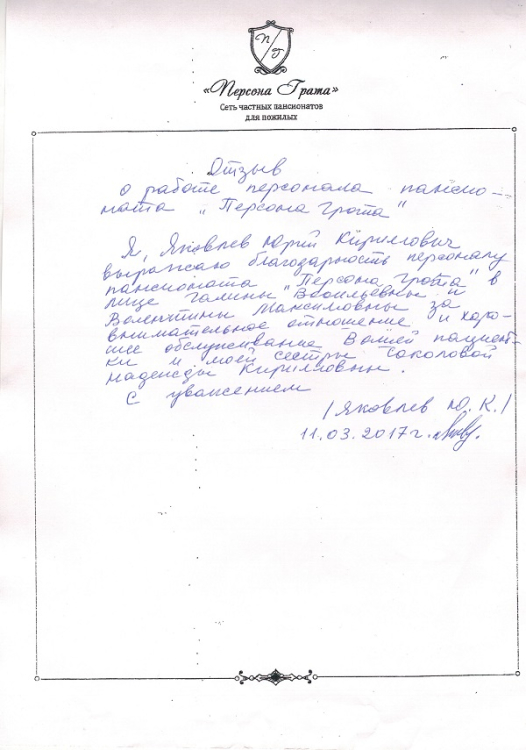 П/Г
«Персона Грата»
Сеть частных пансионатов
для пожилых
Отзыв
о работе персонала пансио-
ната „Персона Грата"
Я, Яковлев Юрий Кириллович
выражаю благодарность персоналу
пансионата „Персона Грата" в
лице Галины Васильевны и
Валентины Максимовны за
внимательное отношение и хоро-
шие обслуживание Вашей пациент-
ки и моей сестры Соколовой
Надежды Кирилловны.
С уважением
/Яковлев Ю.К./
11.03.2017г.